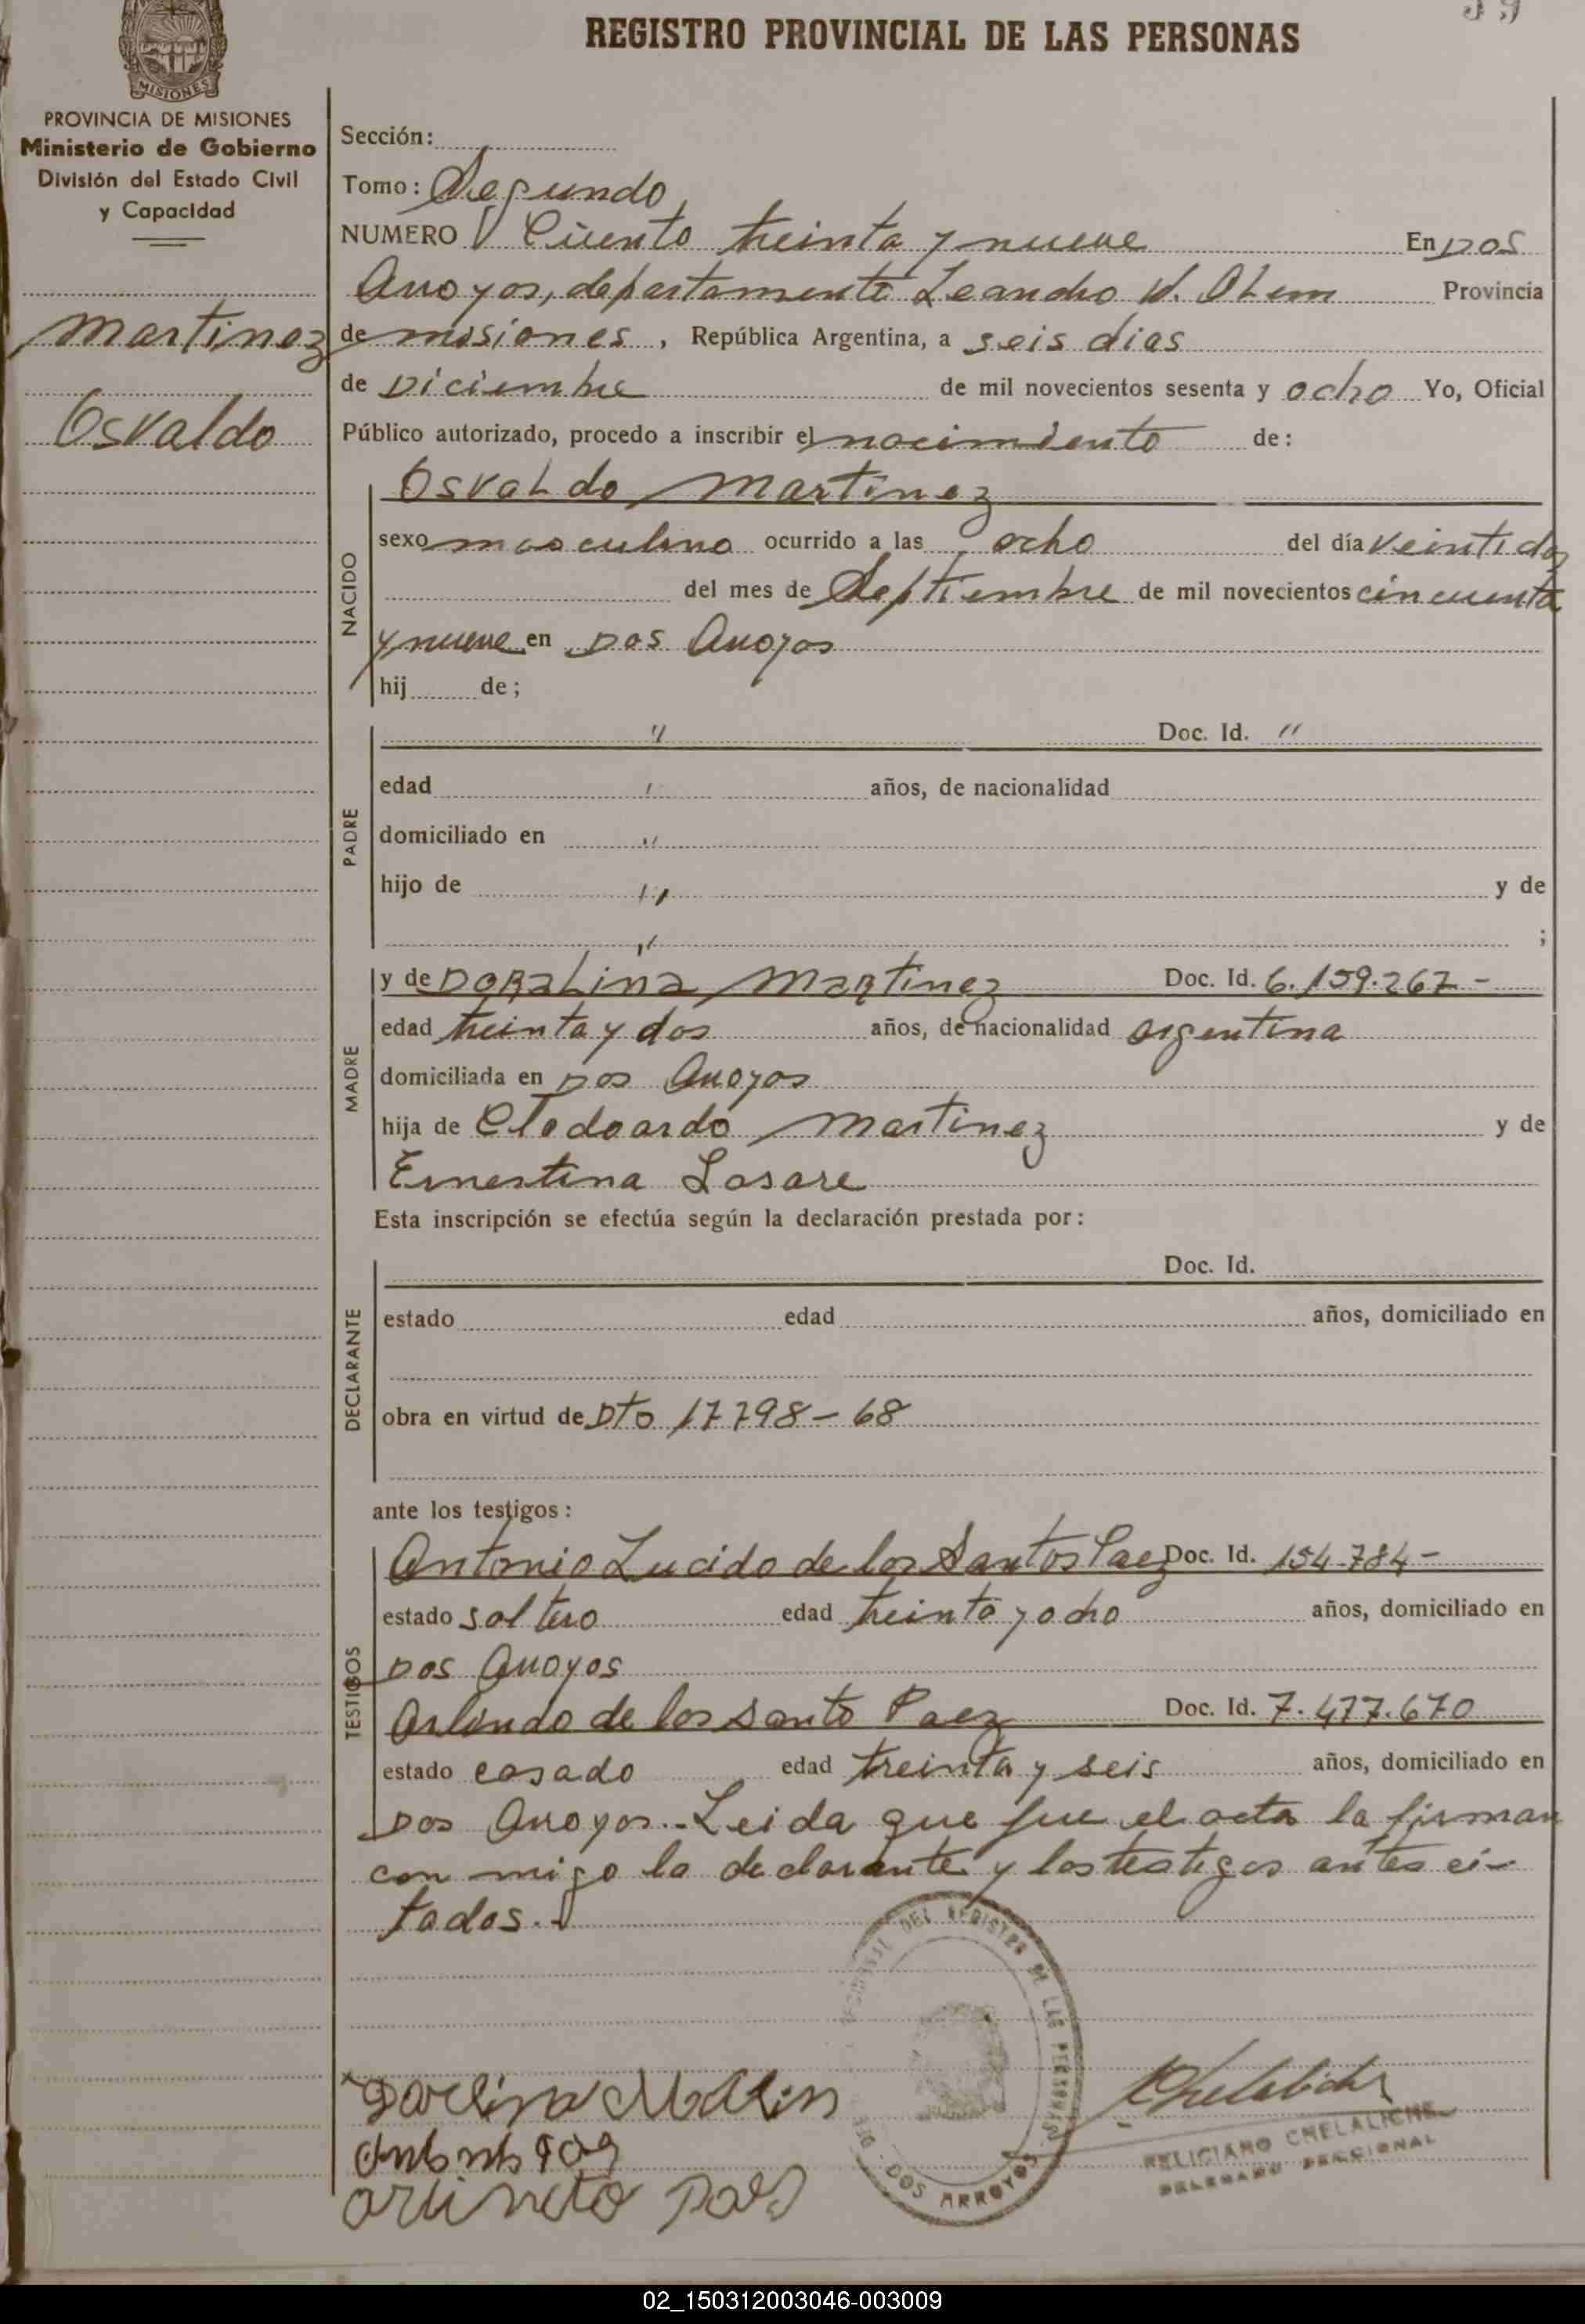 39
REGISTRO PROVINCIAL DE LAS PERSONAS
MISIONES
PROVINCIA DE MISIONES
Ministerio de Gobierno
División del Estado Civil
y Capacidad
Martinez
Osvaldo
Sección:
Tomo: Segundo
NUMERO Ciento treinta y nueve En Dos
Arroyos, departamento Leandro N. Alem Provincia
de misiones, República Argentina, a seis dias
de Diciembre de mil novecientos sesenta y ocho Yo, Oficial
Público autorizado, procedo a inscribir el nacimiento de:
NACIDO
Osvaldo Martinez
sexo masculino ocurrido a las ocho del día veintidos
del mes de Septiembre de mil novecientos cincuenta
y nueve en Dos Arroyos
hij de;
PADRE
" Doc. Id. "
edad " años, de nacionalidad
domiciliado en "
hijo de " y de
" ;
MADRE
y de Doralina Martinez Doc. Id. 6.159.267-
edad treinta y dos años, de nacionalidad argentina
domiciliada en Dos Arroyos
hija de Clodoardo Martinez y de
Ernestina Losare
Esta inscripción se efectúa según la declaración prestada por:
DECLARANTE
Doc. Id.
estado edad años, domiciliado en
obra en virtud de Dto 17798-68
ante los testigos:
TESTIGOS
Antonio Lucido de los Santos Paez Doc. Id. 154.784-
estado soltero edad treinta y ocho años, domiciliado en
Dos Arroyos
Arlindo de los Santo Paez Doc. Id. 7.477.670
estado casado edad treinta y seis años, domiciliado en
Dos Arroyos.- Leida que fue el acta la firman
con migo la declarante y los testigos antes ci-
tados.-
DEL REGISTRO DE LAS PERSONAS
DOS ARROYOS
FELICIANO CHELALICHE
DELEGADO SECCIONAL
02_150312003046-003009